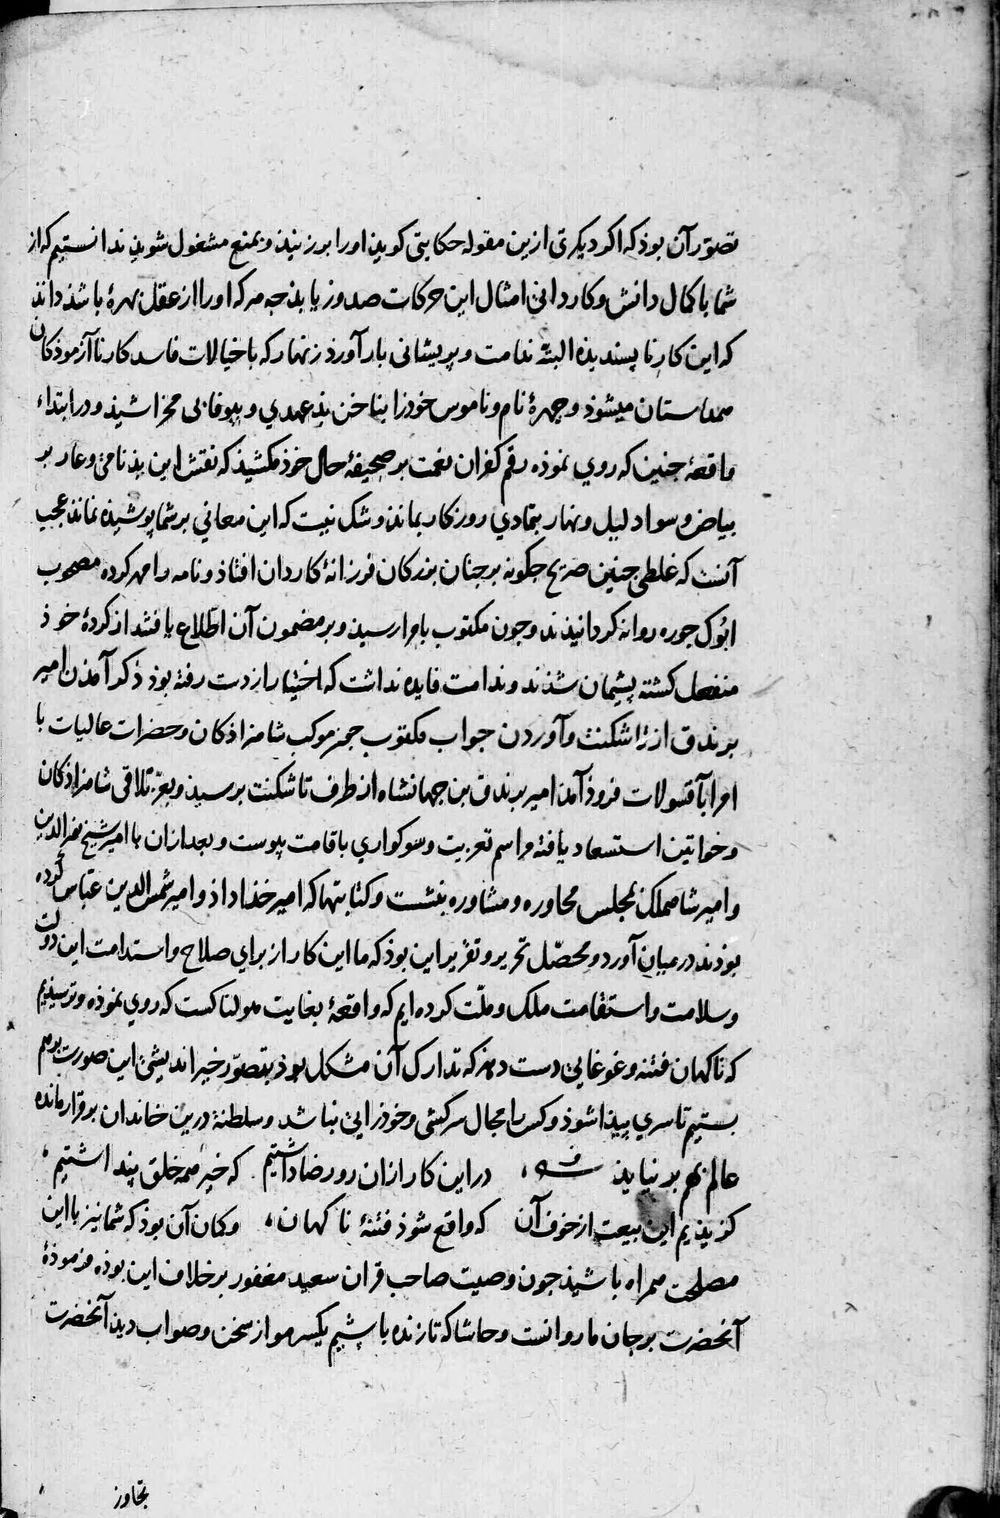 تصوّر آن بوذ که اکر دیکری ازین مقوله حکایتی کویذ اورا برزنیذ و بمنع مشغول شویذ ندانستیم که از
شما با کمال دانش و کاردانی امثال این حرکات صدور یابذ جه هر که اورا از عقل بهرۀ باشذ داند
که این کار ناپسندیذه البتّه ندامت و پریشانی بار آورذ زنهار که با خیالات فاسد کار ناآزموذکان
همداستان میشوذ و جهرۀ نام و ناموس خوذرا بناخن بذعهدی و بیوفایی مخراشیذ و در ابتداء
واقعۀ جنین که روی نموذه رقم کفران نعمت بر صحیفۀ حال خوذ مکشیذ که نقش این بذنامی و عار بر
بیاض و سواد لیل و نهار بتمادی روزکار بماند و شک نیست که این معانی بر شما پوشیذه نماند عجب
آنست که غلطی جنین صریح جکونه بر جنان بزرکان فرزانۀ کاردان افتاذ و نامه را مهر کرده مصحوب
ابوک جوره روانه کردانیذند و جون مکتوب بامرا رسیذ و بر مضمون آن اطّلاع یافتند از کردۀ خوذ
منفعل کشته پشیمان شذند و ندامت فایده نداشت که اختیار از دست رفته بوذ ذکر آمذن امیر
برندق از تاشکنت و آوردن جواب مکتوب جمز موکب شاهزاذکان و حضرات عالیات با
امرا بآقسولات فروذ آمذ امیر برندق بن جهانشاه از طرف تاشکنت برسیذ و بعزّ تلاقی شاهزاذکان
و خواتین استسعاد یافته مراسم تعزیت و سوکواری باقامت پیوست و بعد ازان با امیر شیخ نورالدین
و امیر شاهملک بمجلس محاوره و مشاوره بنشست و کتابتها که امیر خذاداذ و امیر شمس الدین عبّاس کرده
بوذند در میان آورد و محصّل تحریر و تقریر این بوذ که ما این کار از برای صلاح و استدامت این دولت
و سلامت و استقامت ملک و ملّت کرده ایم که واقعۀ بغایت هولناکست که روی نموذه و ترسیذیم
که ناکهان فتنه و غوغایی دست دهذ که تدارک آن مشکل بوذ بتصوّر خیر اندیشی این صورت برهم
بستیم تا سری پیذا شوذ و کس را مجال سرکشی و خوذرایی نباشد و سلطنة درین خاندان برقرار مانده
عالم بهم برنیایذ در این کار ازان رو رضا داشتیم که خیر همه خلق پنداشتیم
کزیذیم این بیعت از خوف آن که واقع شوذ فتنۀ ناکهان، و کمان آن بوذ که شما نیز با این
مصلحت همراه باشیذ جون وصیت صاحب قران سعید مغفور بر خلاف این بوذه فرموذۀ
آنحضرت بر جان ما روانست و حاشا که تا زنده باشیم یکسر مو از سخن و صواب دیذ آنحضرت
تجاوز